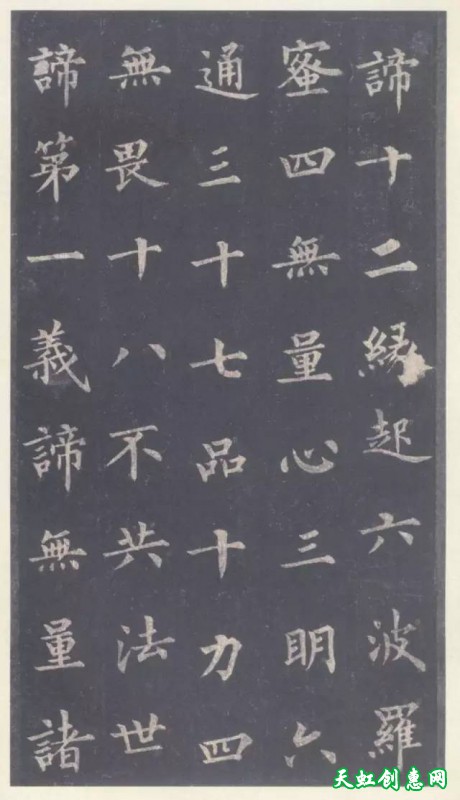 諦十二緣起六波羅
蜜四無量心三明六
通三十七品十力四
無畏十八不共法世
諦第一義諦無量諸
天虹创惠网